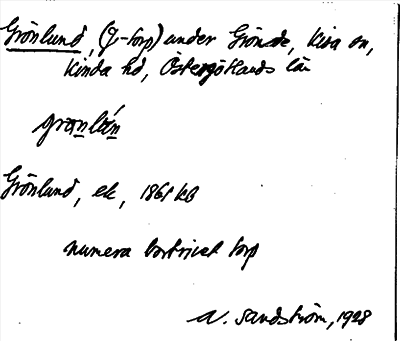 Grönlund, (f-torp) under Grönede, Kisa sn,
Kinda hd, Östergötlands län
gronlán
Grönlund, ek, 1868 kb
numera bortrivet torp
N. Sandström, 1928